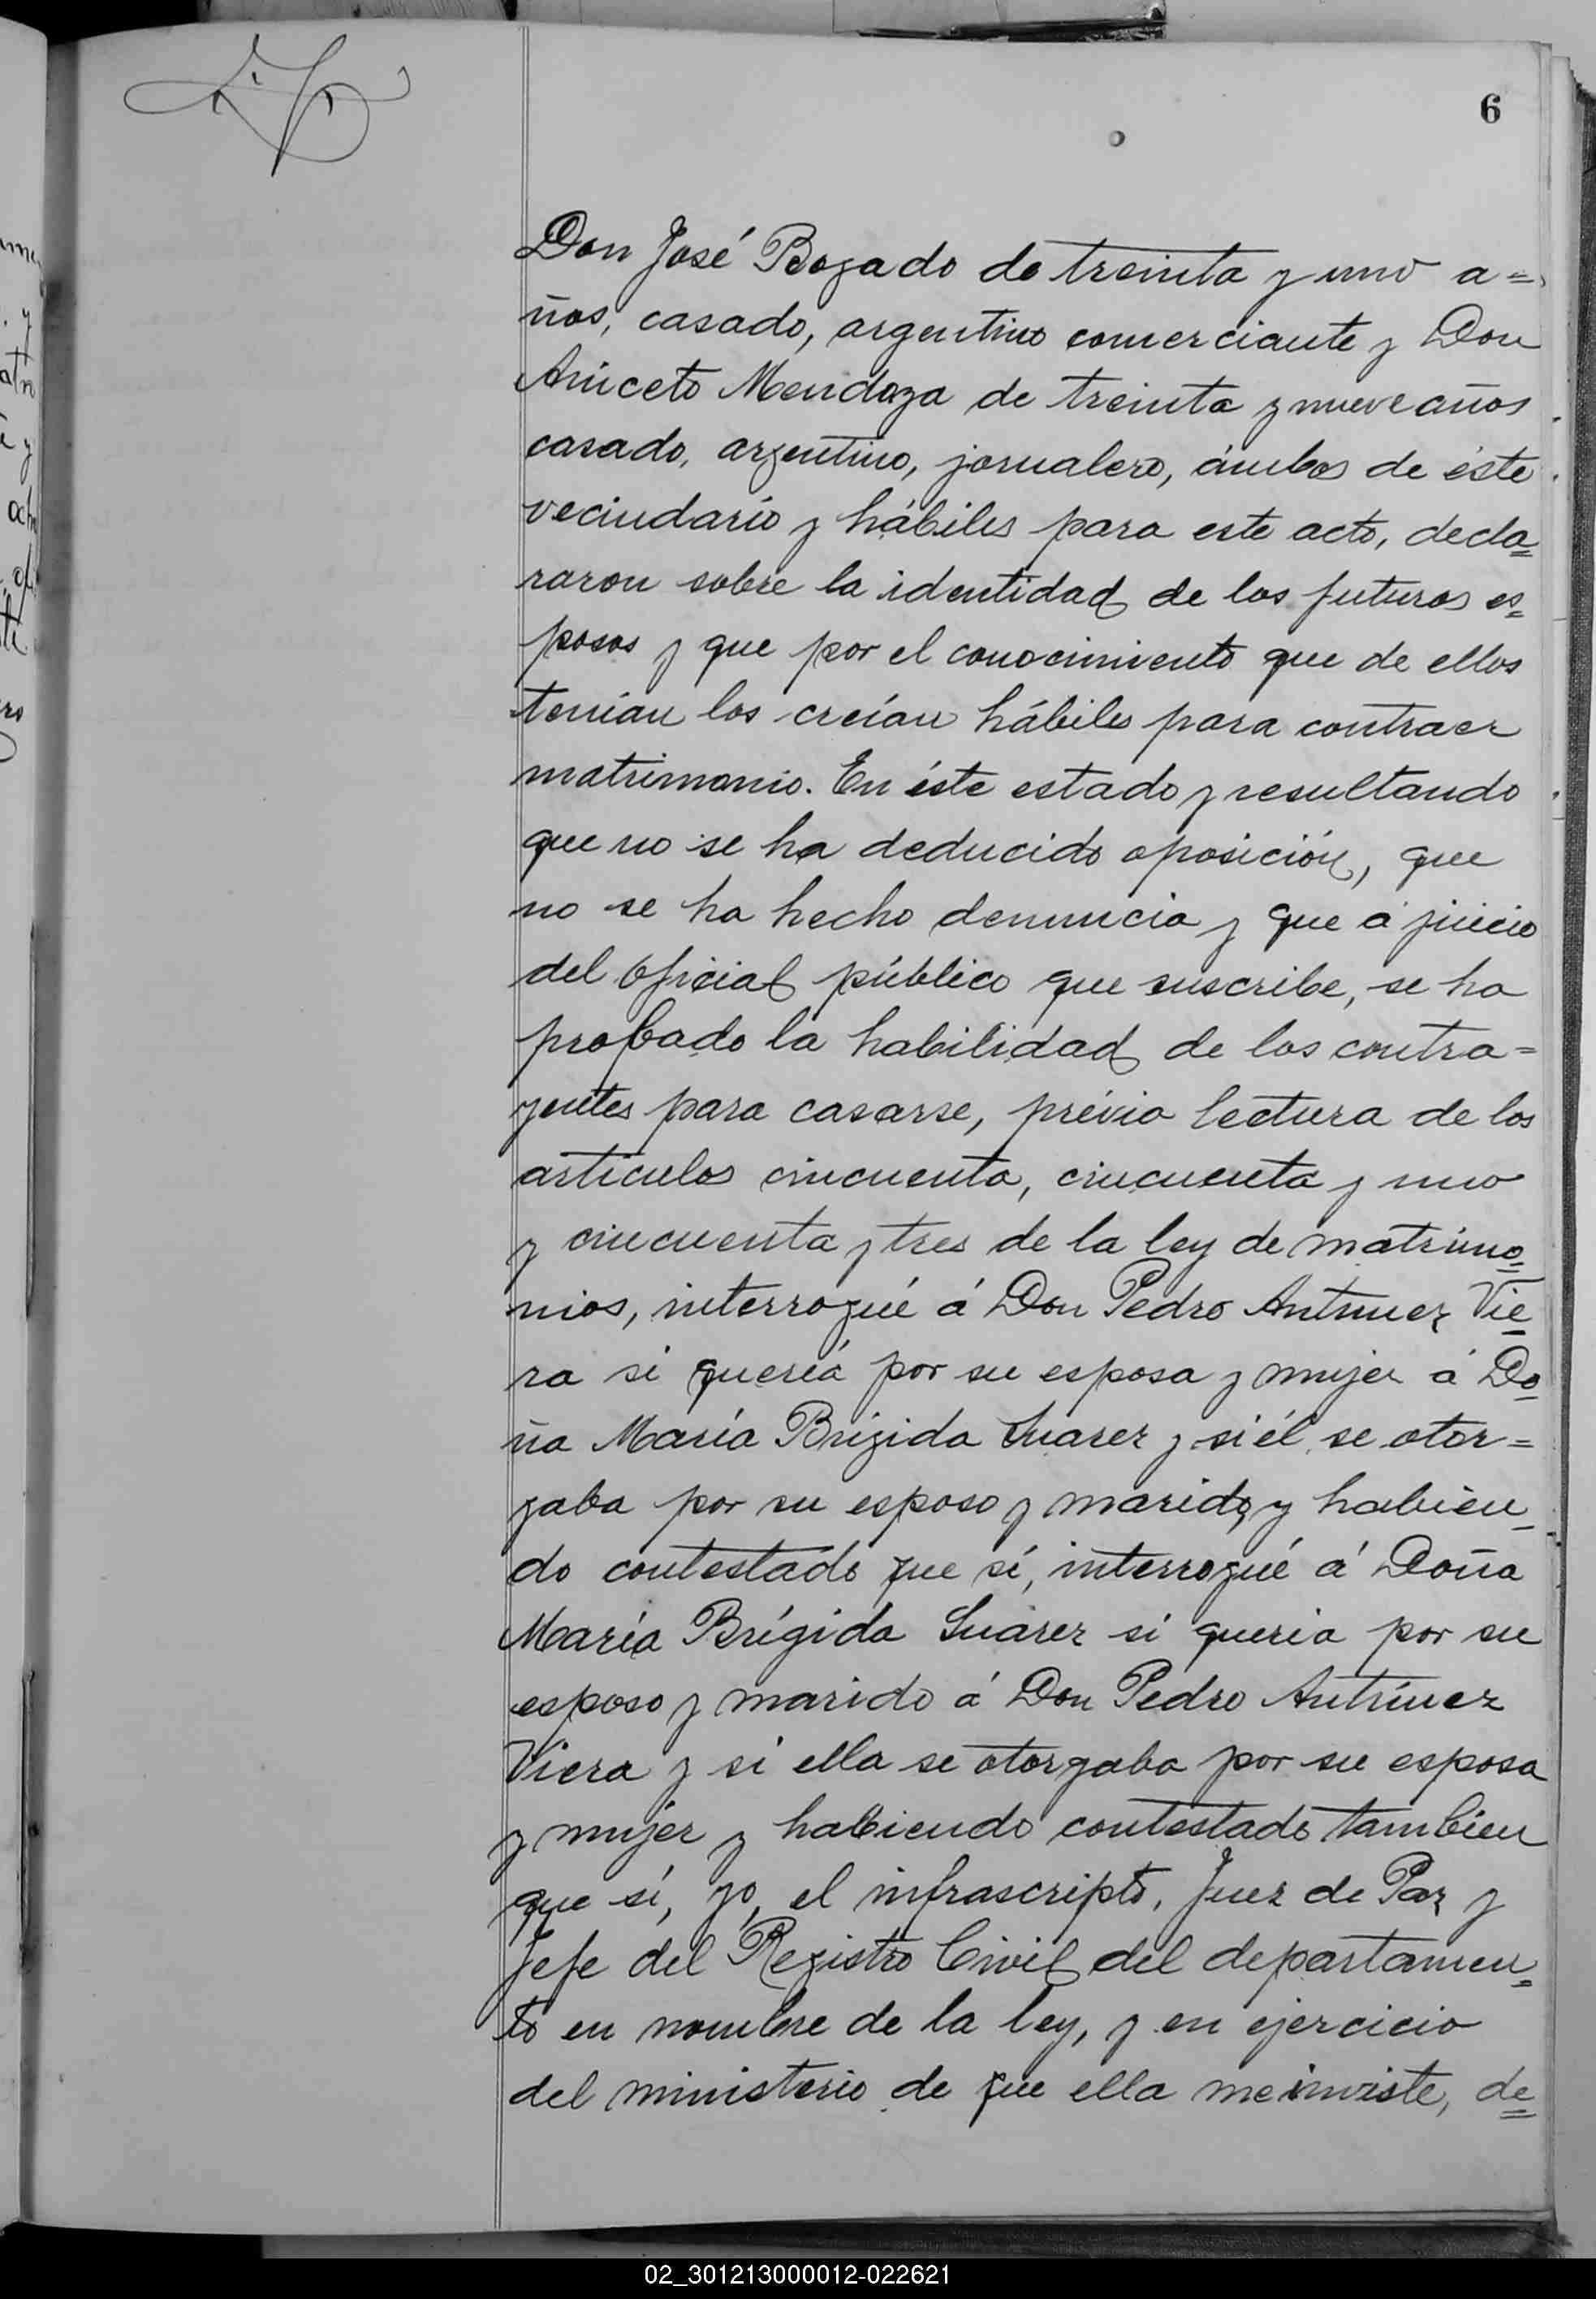 6
Don José Bogado de treinta y uno a=
ños, casado, argentino comerciante y Don
Aniceto Mendoza de treinta y nueve años
casado, argentino, jornalero, ámbos de éste
vecindario y hábiles para este acto, decla=
raron sobre la identidad de los futuros es=
posos y que por el conocimiento que de ellos
tenían los creían hábiles para contraer
matrimonio. En éste estado y resultando
que no se ha deducido oposición, que
no se ha hecho denuncia y que á juicio
del oficial público que suscribe, se ha
probado la habilidad de los contra=
yentes para casarse, prévia lectura de los
artículos cincuenta, cincuenta y uno
y cincuenta y tres de la ley de matrimo=
nios, interrogué á Don Pedro Antunez Vie=
ra si quería por su esposa y mujer á Do=
ña María Brígida Suarez y si él se otor=
gaba por su esposo y marido, y habien_
do contestado que sí, interrogué á Doña
María Brígida Suárez si queria por su
esposo y marido á Don Pedro Antúnez
Viera y si ella se otorgaba por su esposa
y mujer y habiendo contestado tambien
que sí, yo, el infrascripto, Juez de Paz y
Jefe del Registro Civil del departamen=
to en nombre de la ley, y en ejercicio
del ministerio de que ella me inviste, de=
02_301213000012-022621